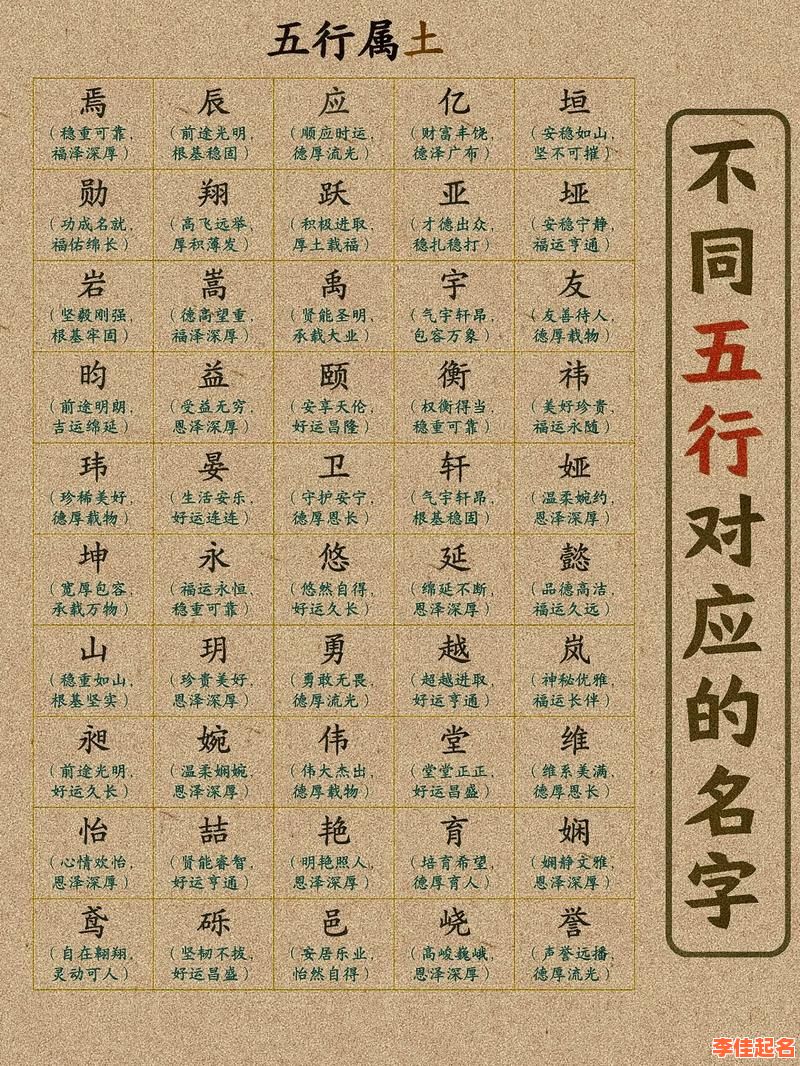 五行属土
焉 辰 应 亿 垣
（稳重可靠， （前途光明， （顺应时运， （财富丰饶， （安稳如山，
福泽深厚） 根基稳固） 德厚流光） 德泽广布） 坚不可摧）
勋 翔 跃 亚 垭
（功成名就， （高飞远举， （积极进取， （才德出众， （安稳宁静，
福佑绵长） 厚积薄发） 厚土载福） 稳扎稳打） 福运亨通）
岩 嵩 禹 宇 友
（坚毅刚强， （德高望重， （贤能圣明， （气宇轩昂， （友善待人，
根基牢固） 福泽深厚） 承载大业） 包容万象） 德厚载物）
昀 益 颐 衡 祎
（前途明朗， （受益无穷， （安享天伦， （权衡得当， （美好珍贵，
吉运绵延） 恩泽深厚） 好运昌隆） 稳重可靠） 福运永随）
玮 晏 卫 轩 娅
（珍稀美好， （生活安乐， （守护安宁， （气宇轩昂， （温柔婉约，
德厚载物） 好运连连） 德厚恩长） 根基稳固） 恩泽深厚）
坤 永 悠 延 懿
（宽厚包容， （福运永恒， （悠然自得， （绵延不断， （品德高洁，
承载万物） 稳重可靠） 好运久长） 恩泽深厚） 福运久远）
山 玥 勇 越 岚
（稳重如山， （珍贵美好， （勇敢无畏， （超越进取， （神秘优雅，
根基坚实） 恩泽深厚） 德厚流光） 好运亨通） 福运长伴）
昶 婉 伟 堂 维
（前途光明， （温柔娴婉， （伟大杰出， （堂堂正正， （维系美满，
好运久长） 恩泽深厚） 德厚载物） 好运昌盛） 德厚恩长）
怡 喆 艳 育 娴
（心情欢怡， （贤能睿智， （明艳照人， （培育希望， （娴静文雅，
恩泽深厚） 好运亨通） 恩泽深厚） 德厚育人） 恩泽深厚）
鸢 砾 邑 峣 誉
（自在翱翔， （坚韧不拔， （安居乐业， （高峻巍峨， （声誉远播，
灵动可人） 好运昌盛） 怡然自得） 恩泽深厚） 德厚流光）
不同五行对应的名字
李佳起名